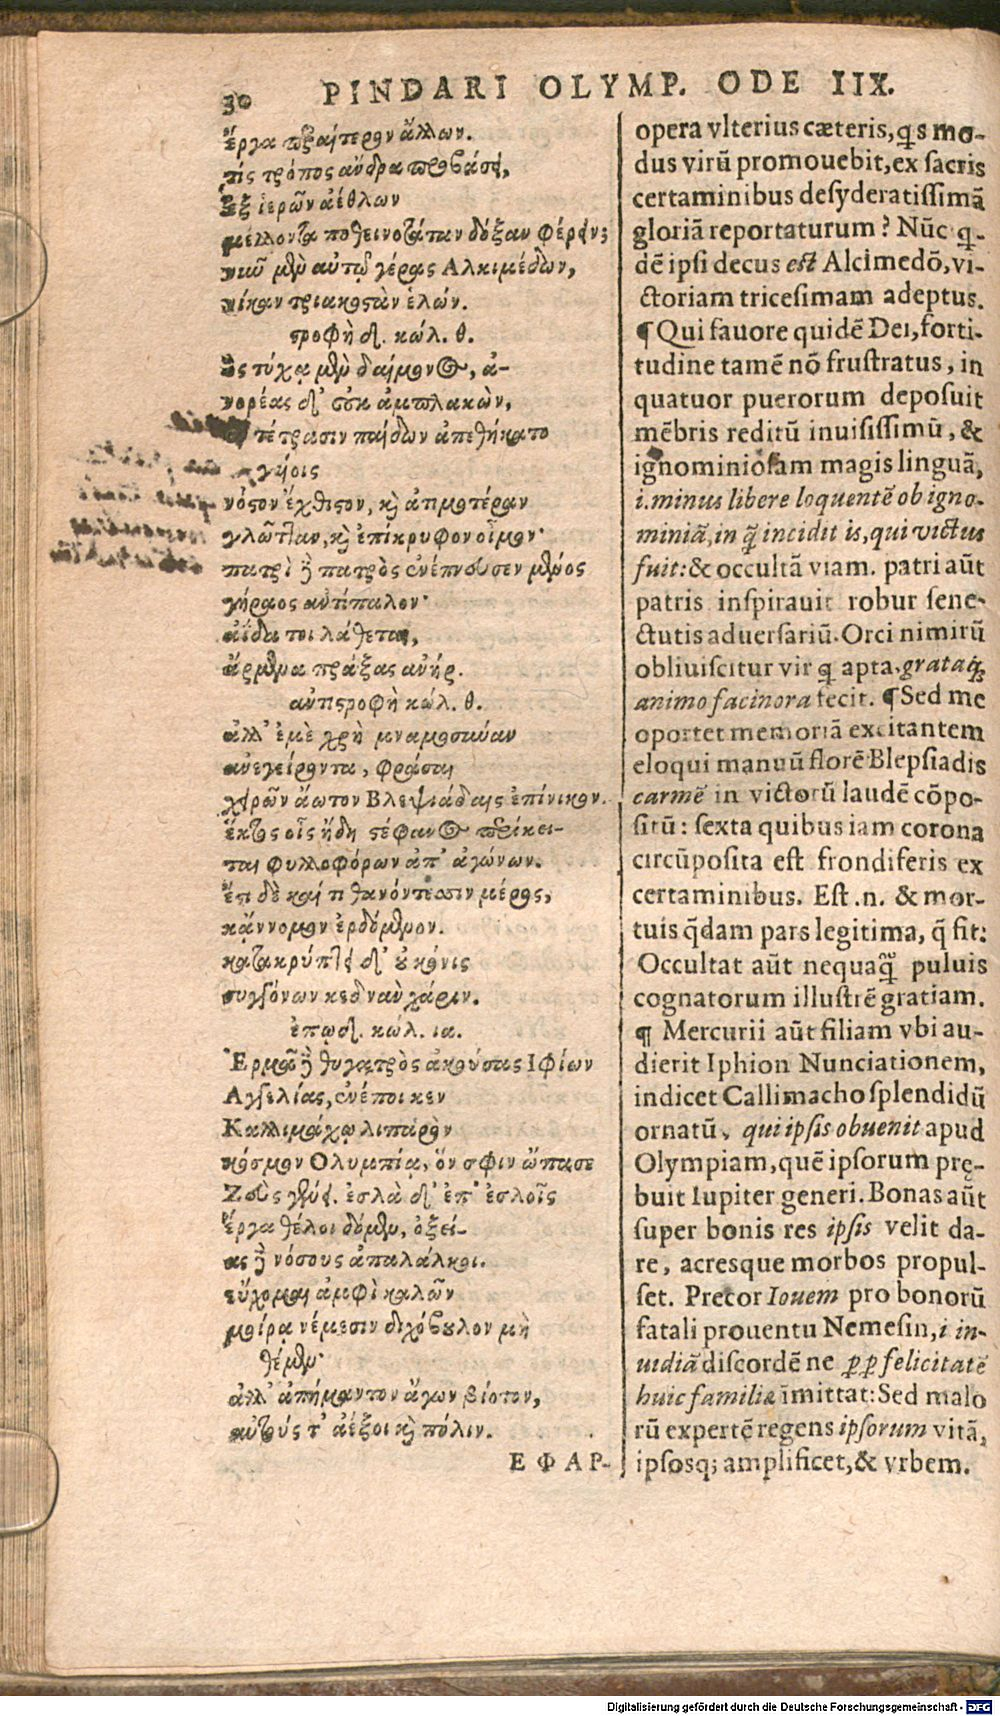 30 PINDARI OLYMP. ODE IIX.
ἔργα πραίτερον ἄλλων.
τίς τρόπος ἄνδρα προβάσει,
Ἐξ ἱερῶν ἀέθλων
μέλλοντα ποθεινοτάταν δόξαν φέρειν;
νιῦ μὲν αὐτῷ γέρας Αλκιμέδων,
νίκαν τριακοστὰν ἑλών.
στροφὴ δ. κώλ. θ.
Ὃς τύχᾳ μὲν δαίμονος, ἀ-
νορέας δ' οὐκ ἀμπλακὼν,
ἐν τέτρασιν παίδων ἀπεθήκατο
γυίοις
νόστον ἔχθιστον, καὶ ἀτιμοτέραν
γλῶτταν, καὶ ἐπίκρυφον οἶμον·
πατρὶ δὲ πατρὸς ἐνέπνευσεν μένος
γήραος ἀντίπαλον·
ἀΐδα τοι λάθεται,
ἄρμενα πράξας ἀνήρ.
ἀντιστροφὴ κώλ. θ.
ἀλλ' ἐμὲ χρὴ μναμοσύναν
ἀνεγείροντα, φράσαι
χειρῶν ἄωτον Βλεψιάδαις ἐπίνικον.
ἕκτος οἷς ἤδη στέφανος περίκει-
ται φυλλοφόρων ἀπ' ἀγώνων.
ἔστι δὲ καί τι θανόντεσσιν μέρος,
κἄννομον ἐρδόμενον.
κατακρύπτει δ' οὐ κόνις
συγγόνων κεδνὰν χάριν.
ἐπῳδ. κώλ. ια.
Ἑρμᾶ δὲ θυγατρὸς ἀκούσας Ιφίων
Αγγελίας, ἐνέποι κεν
Καλλιμάχῳ λιπαρὸν
κόσμον Ολυμπίᾳ, ὅν σφιν ὤπασε
Ζεὺς γένει. ἐσλὰ δ' ἐπ' ἐσλοῖς
ἔργα θέλοι δόμεν, ὀξεί-
ας δὲ νόσους ἀπαλάλκοι.
εὔχομαι ἀμφὶ καλῶν
μοίρᾳ νέμεσιν διχόβουλον μὴ
θέμεν·
ἀλλ' ἀπήμαντον ἄγων βίοτον,
αὐτούς τ' ἀέξοι καὶ πόλιν.
ΕΦΑΡ-
opera vlterius cæteris, qs mo-
dus virũ promouebit, ex sacris
certaminibus desyderatissimã
gloriã reportaturum? Nũc q-
dẽ ipsi decus est Alcimedõ, vi-
ctoriam tricesimam adeptus.
¶ Qui fauore quidẽ Dei, forti-
tudine tamẽ nõ frustratus, in
quatuor puerorum deposuit
mẽbris reditũ inuisissimũ, &
ignominiosam magis linguã,
i. minus libere loquentẽ ob igno-
miniã, in q̃ incidit is, qui victus
fuit: & occultã viam. patri aũt
patris inspirauit robur sene-
ctutis aduersariũ. Orci nimirũ
obliuiscitur vir q apta, grataq;
animo facinora fecit. ¶ Sed me
oportet memoriã excitantem
eloqui manuũ florẽ Blepsiadis
carmẽ in victorũ laudẽ cõpo-
situ̅: sexta quibus iam corona
circũposita est frondiferis ex
certaminibus. Est .n. & mor-
tuis q̃dam pars legitima, q̃ fit:
Occultat aũt nequaq̃ puluis
cognatorum illustrẽ gratiam.
¶ Mercurii aũt filiam vbi au-
dierit Iphion Nunciationem,
indicet Callimacho splendidũ
ornatũ, qui ipsis obuenit apud
Olympiam, quẽ ipsorum prę-
buit Iupiter generi. Bonas aũt
super bonis res ipsis velit da-
re, acresque morbos propul-
set. Precor Iouem pro bonorũ
fatali prouentu Nemesin, i in-
uidiã discordẽ ne ꝑꝑ felicitatẽ
huic familiæ ĩmittat: Sed malo
rũ expertẽ regens ipsorum vitã,
ipsosq; amplificet, & vrbem.
Digitalisierung gefördert durch die Deutsche Forschungsgemeinschaft - DFG